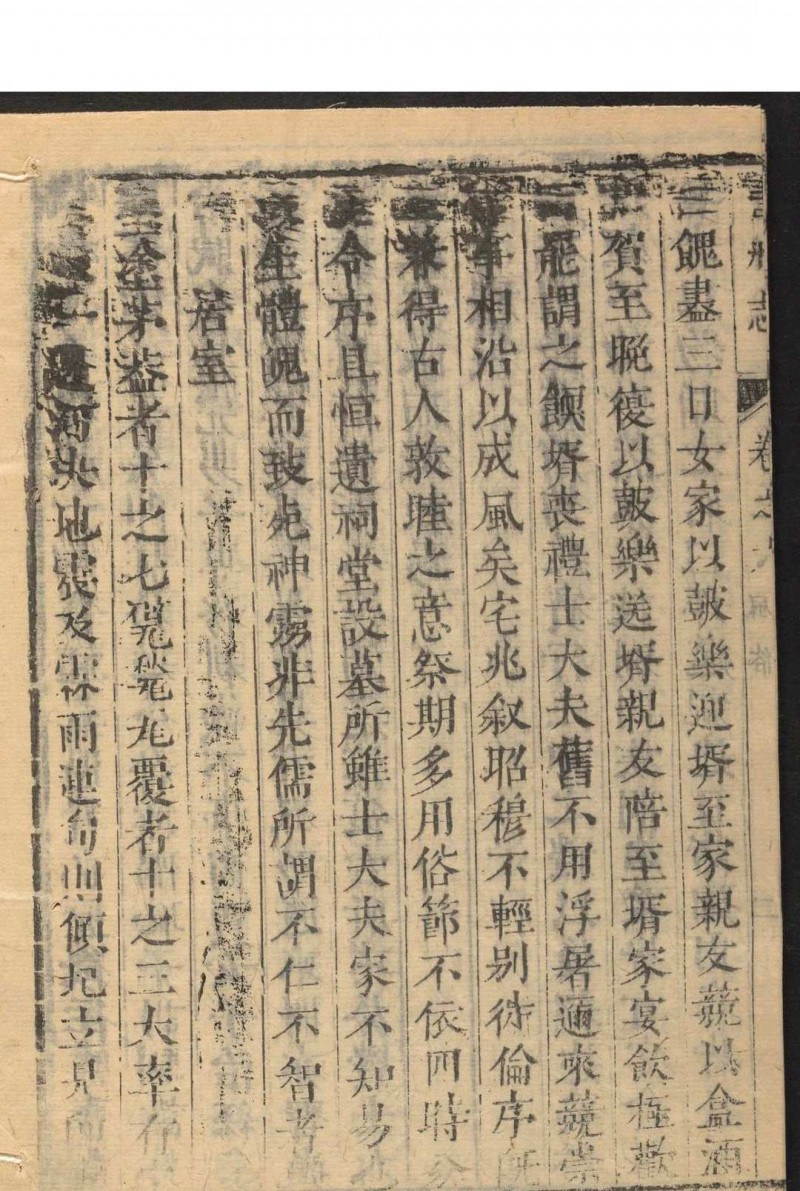 志 卷之六 風俗
餽盡三日女家以鼓樂迎壻至家親友競以盒酒
賀至晚復以鼓樂送壻親友陪至壻家宴飲極歡
罷謂之餪壻喪禮士大夫舊不用浮屠邇來競崇
事相沿以成風矣宅兆叙昭穆不輕别待倫序
兼得古人敦睦之意祭期多用俗節不依四時
令序且恒遺祠堂設墓所雖士大夫家不知易
生體魄而致死神靈非先儒所謂不仁不智者
居室
塗茅葢者十之七 覆者十之三大率
河决地震及霖雨連旬則傾圮立見